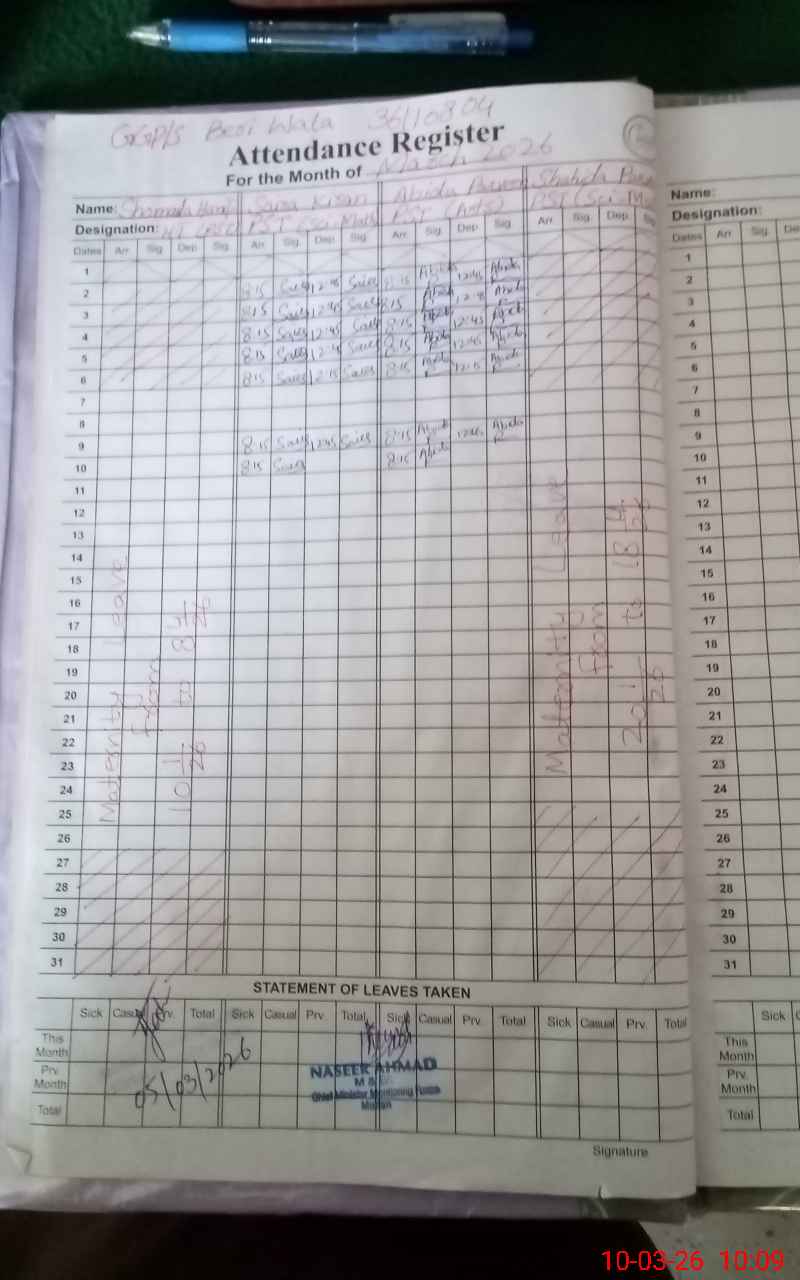 GGP/S Beri Wala 36110804
Attendance Register
For the Month of March 2026
Name: Saira Kiran Abida Shahida
Designation: PST (Sci-Math) PST (Arts) PST (Sci-M
Dates Arr. Sig. Dep. Sig. Arr. Sig. Dep. Sig. Arr. Sig. Dep. Sig. Arr. Sig. Dep. Sig.
1
2 8:15 12:45 8:15 Abida 12:45 Abida
3 8:15 12:45 8:15 Abida 12:45 Abida
4 8:15 12:45 8:15 Abida 12:45 Abida
5 8:15 8:15 Abida 12:45 Abida
6 8:15 12:15 8:15 Abida 12:15 Abida
7
8
9 8:15 12:45 8:15 Abida 12:45 Abida
10 8:15 8:15 Abida
11
12
13
14
15
16
17
18
19
20
21
22
23
24
25
26
27
28
29
30
31
Maternity Leave
From
10 1/26 to 8 4/26
Maternity Leave
From
20 1/26 to 18 4/26
STATEMENT OF LEAVES TAKEN
Sick Casual Prv. Total Sick Casual Prv. Total Sick Casual Prv. Total Sick Casual Prv. Total
This Month
Prv. Month
Total
05/03/2026
NASEER AHMAD
M &
Chief Minister Monitoring Force
Signature
Name:
Designation:
Dates Arr. Sig. De
1
2
3
4
5
6
7
8
9
10
11
12
13
14
15
16
17
18
19
20
21
22
23
24
25
26
27
28
29
30
31
Sick C
This Month
Prv. Month
Total
10-03-26 10:09